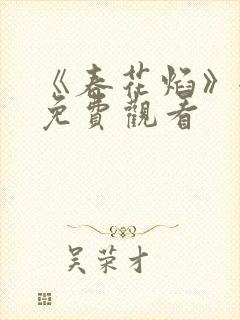 《春花焰》
免費觀看
吴荣才